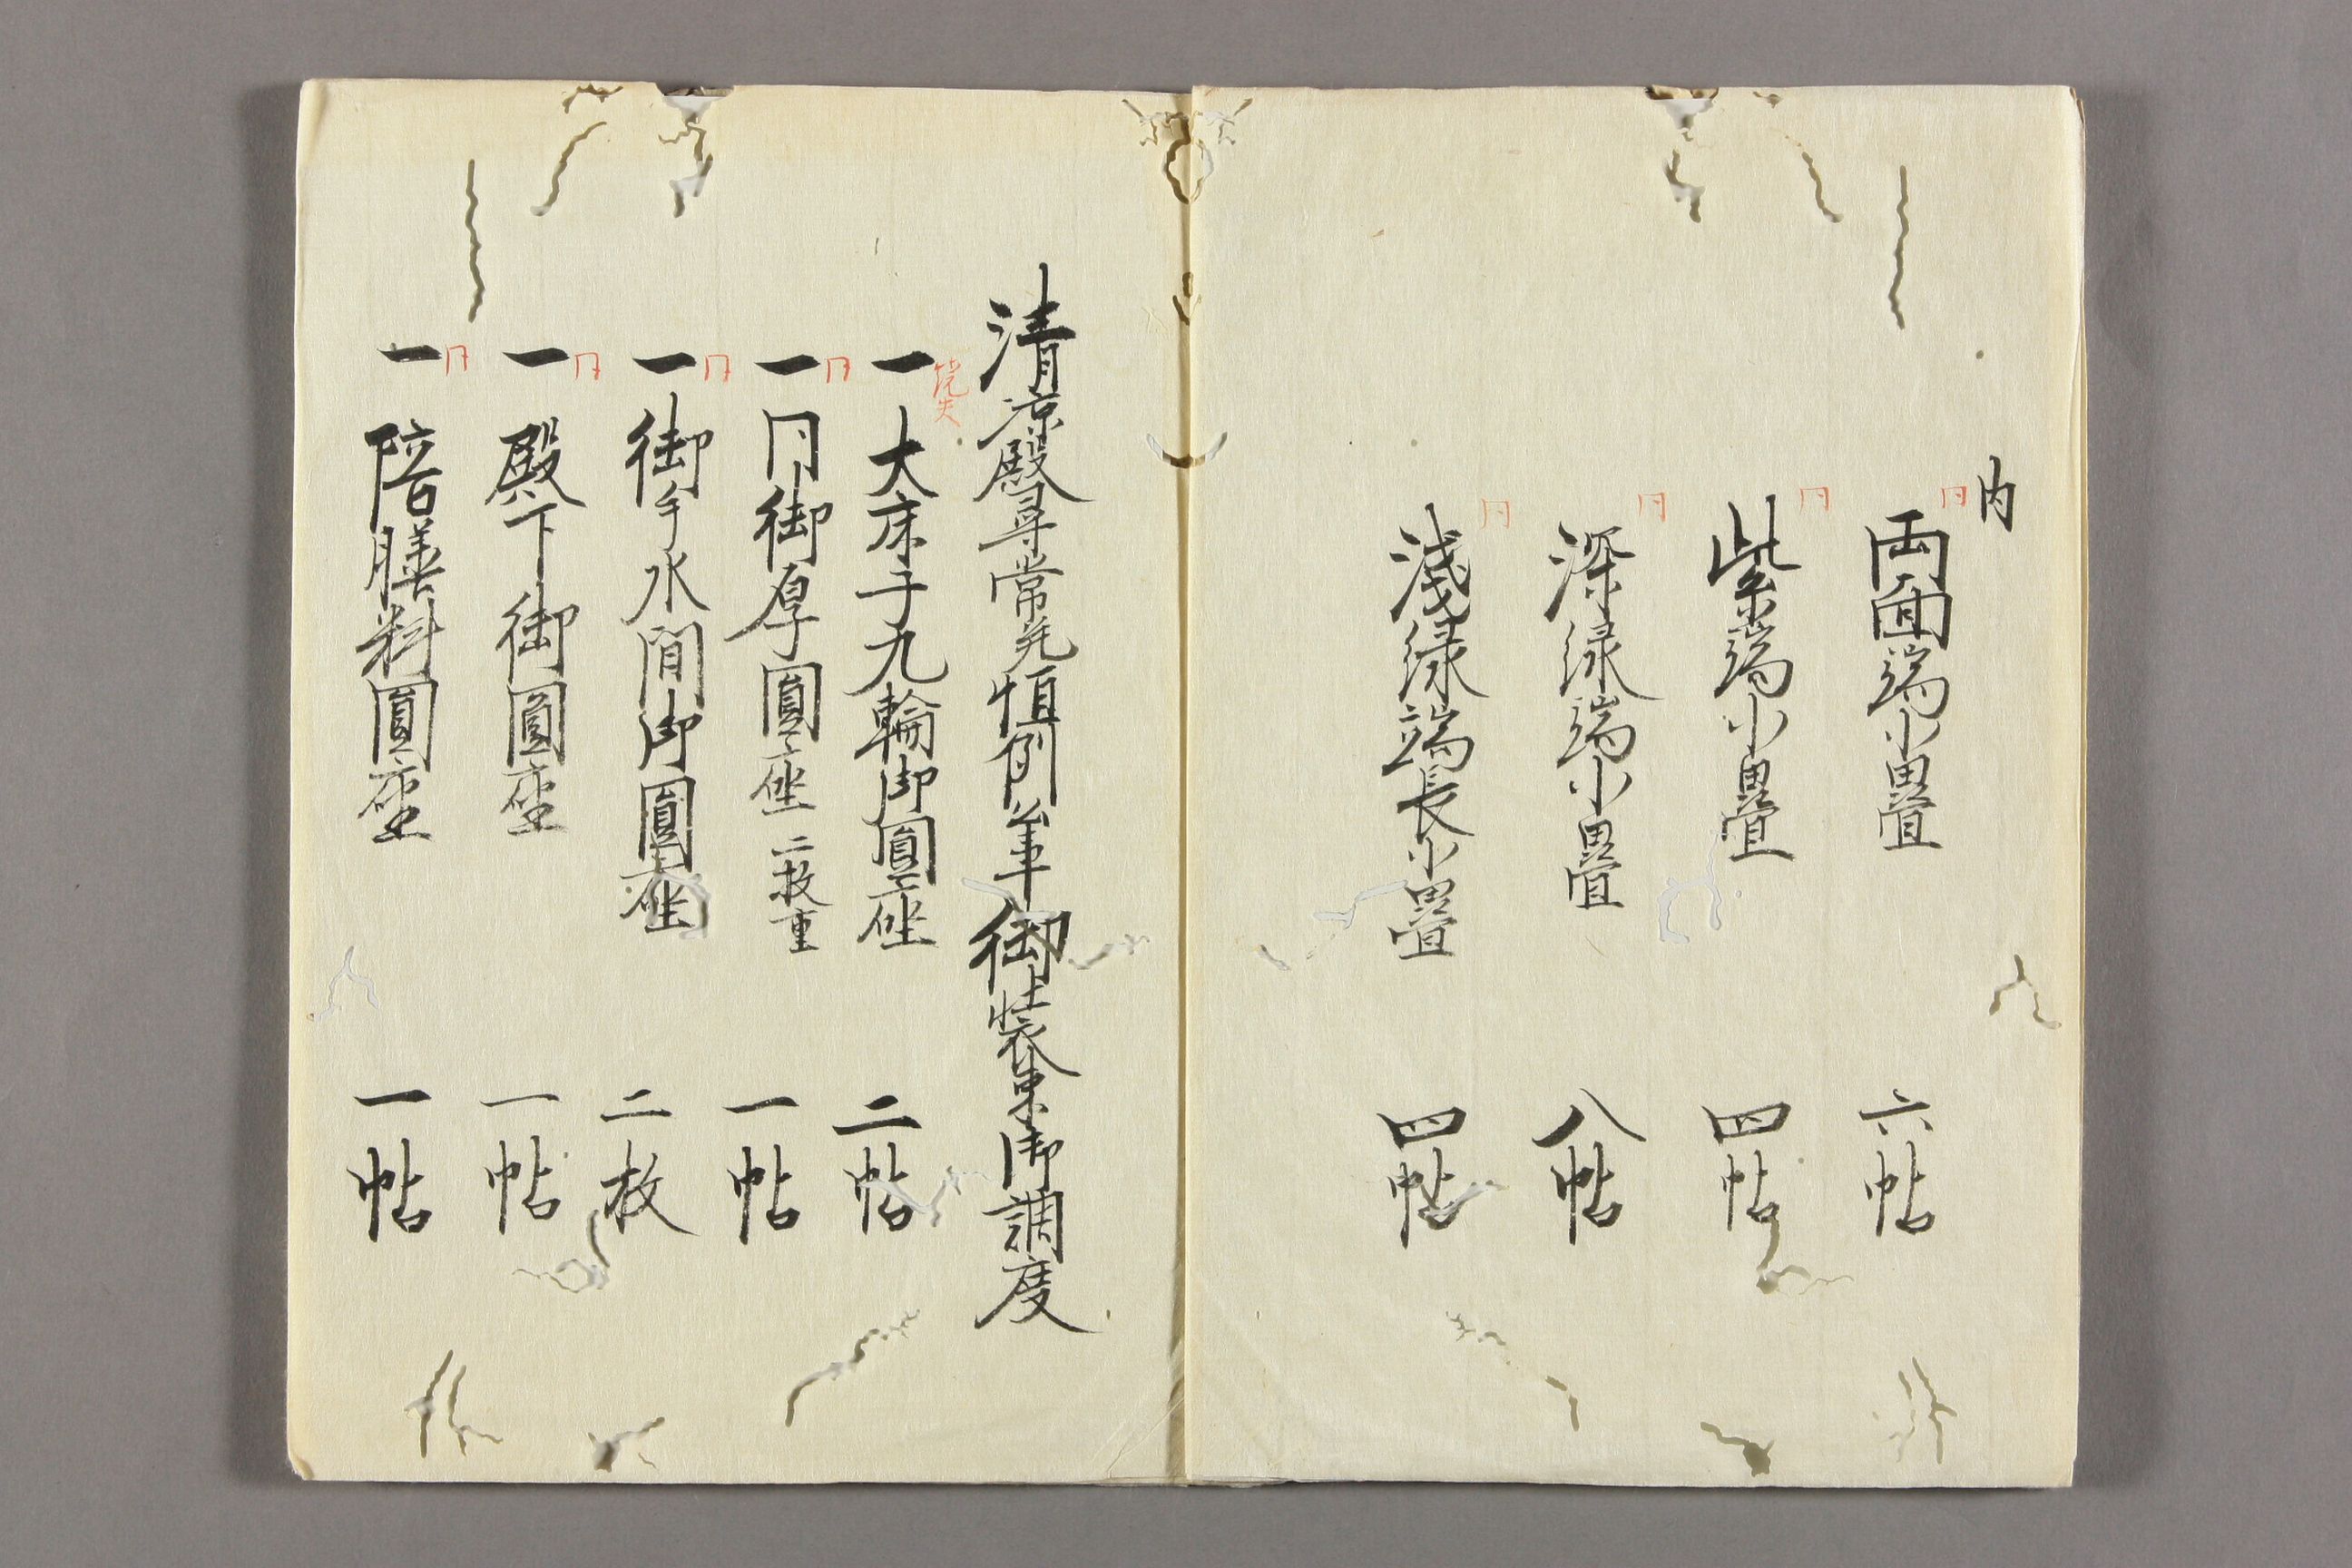 内
同
両面端小畳 六帖
同
紫端小畳 四帖
同
深緑端小畳 八帖
同
浅緑端長小畳 四帖
清凉殿尋常先恒例公筆御装束御調度
焼失
一 大床子九輪御圓座 二帖
同
一 同御厚圓座 二枚重 一帖
同
一 御手水間御圓座 二枚
同
一 殿下御圓座 一帖
同
一 陪膳料圓座 一帖